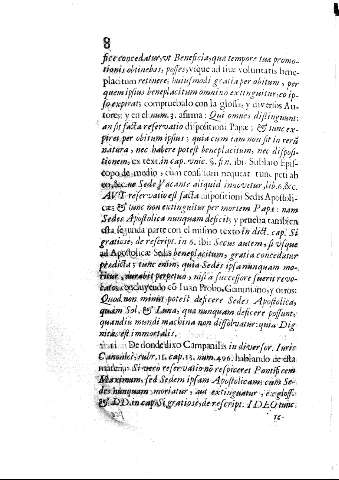 8
fice concedatur, ut Beneficia, quæ tempore tuæ promo-
tionis obtinebas, posses, usque ad suæ voluntatis bene-
placitum retinere, huiusmodi gratia per obitum, per
quem ipsius beneplacitum omnino extinguitur, eo ip-
so expirat; compruebalo con la glossa, y diversos Au-
tores; y en el num. 3. afirma: Qui omnes distinguunt:
an sit facta reservatio dispositioni Papæ; & tunc ex-
pirat per obitum ipsius; quia cum tam non sit in rerũ
natura, nec habere potest beneplacitum, nec disposi-
tionem, ex text. in cap. unic. §. fin. ibi: Sublato Epis-
copo de medio, cum constitum nequeat
ne Sede Vacante aliquid innovetur, lib. 6. &c.
AUT reservatio est facta dispositioni Sedis Apostoli-
cæ; & tunc non extinguitur per mortem Papæ: nam
Sedes Apostolica nunquam deficit; y prueba tambien
esta segunda parte con el mismo texto in dict. cap. Si
gratiose, de rescript. in 6. ibi: Secus autem, si usque
ad Apostolicæ Sedis beneplacitum, gratia concedatur
predicta; tunc enim, quia Sedes ipsa nunquam mo-
ritur, durabit perpetuo, nisi à successore fuerit revo-
cata: concluyendo có Juan Probo, Geminiano, y otros:
Quod non minus potest deficere Sedes Apostolica,
quam Sol, & Luna, quæ nunquam deficere possunt,
quandiu mundi machina non dissolvatur: quia Dig-
nitas est immortalis.
De donde dixo Campanilis in diversor. Iuris
Canonici, rubr. 11. cap. 13. num. 496. hablando de esta
materia: Si vero reservatio nõ respiceret Pontificem
Maximum, sed Sedem ipsam Apostolicam; cum Se-
des nunquam moriatur, aut extinguatur, ex gloss.
& DD. in cap. Si gratiose, de rescript. IDEO tunc